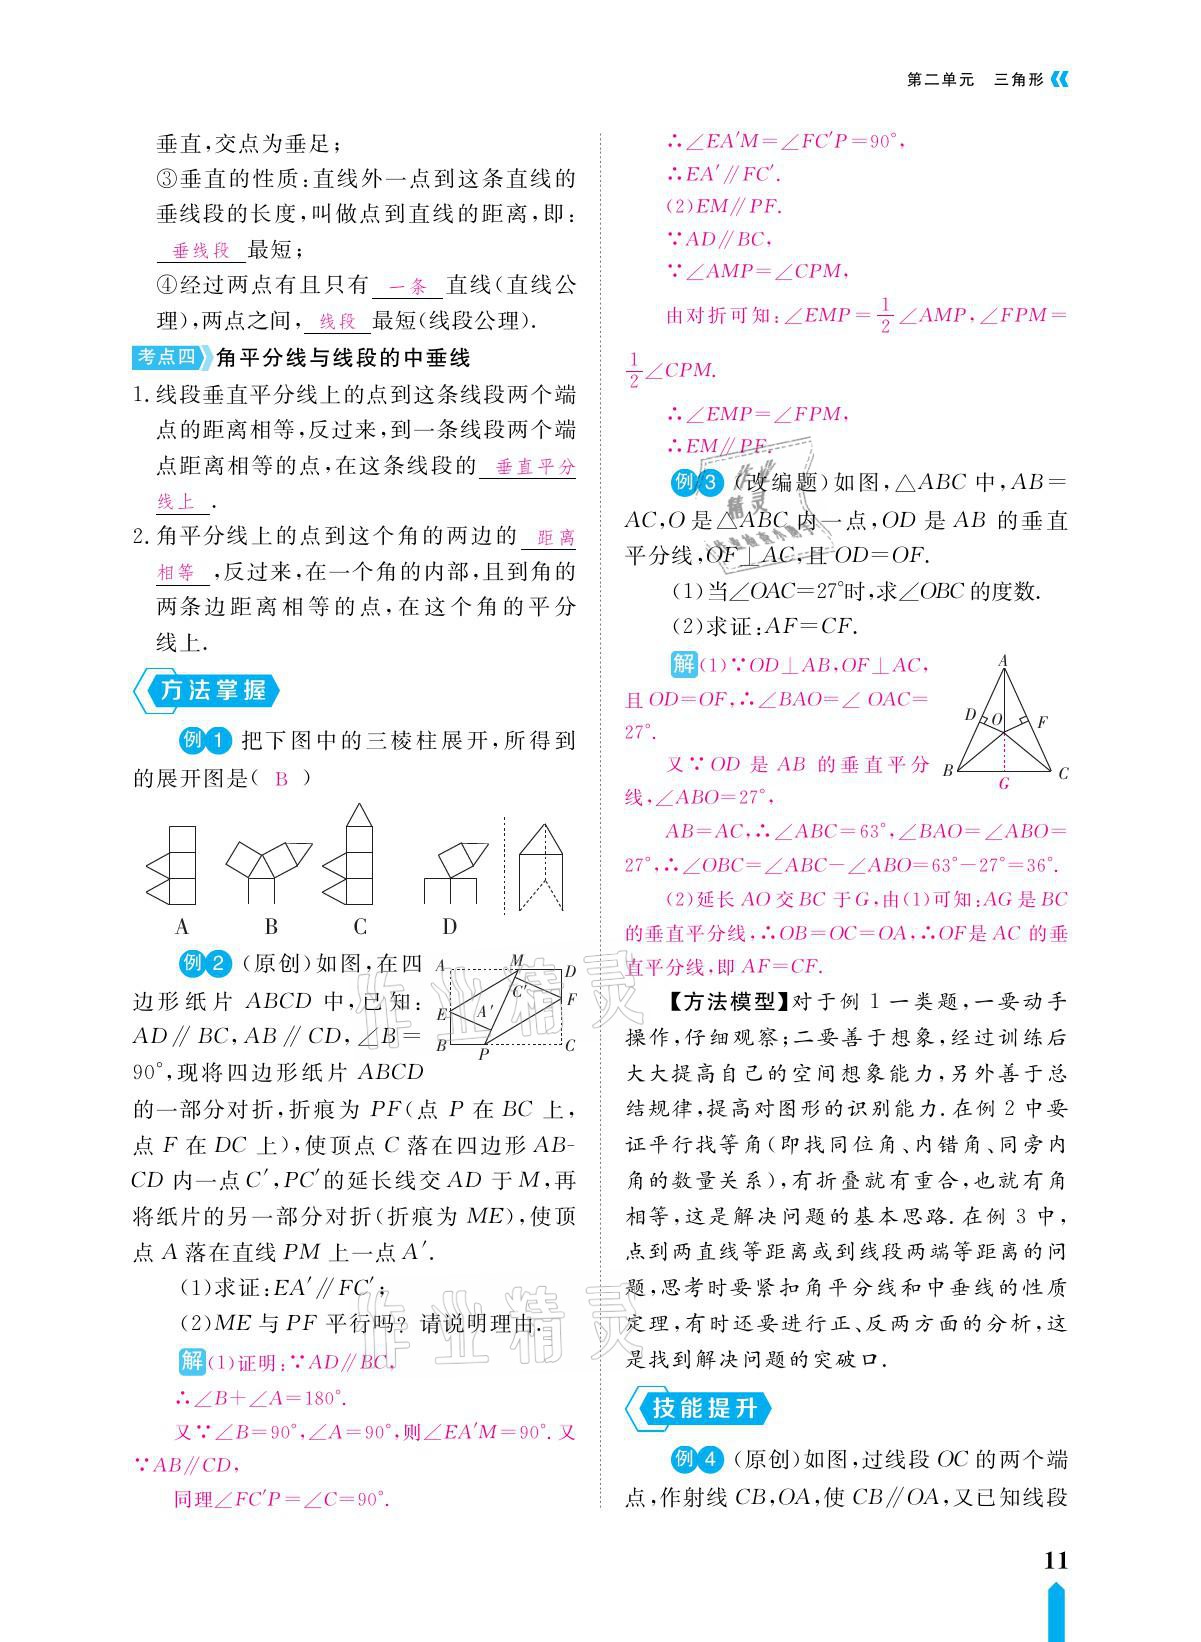 第二单元 三角形
垂直,交点为垂足;
③垂直的性质:直线外一点到这条直线的
垂线段的长度,叫做点到直线的距离,即:
垂线段 最短;
④经过两点有且只有 一条 直线(直线公
理),两点之间, 线段 最短(线段公理).
考点四 角平分线与线段的中垂线
1. 线段垂直平分线上的点到这条线段两个端
点的距离相等,反过来,到一条线段两个端
点距离相等的点,在这条线段的 垂直平分
线上 .
2. 角平分线上的点到这个角的两边的 距离
相等 ,反过来,在一个角的内部,且到角的
两条边距离相等的点,在这个角的平分
线上.
方法掌握
例1 把下图中的三棱柱展开,所得到
的展开图是( B )
A B C D
例2 (原创)如图,在四
边形纸片 ABCD 中,已知:
AD∥BC,AB∥CD,∠B=
90°,现将四边形纸片 ABCD
A M D C′ F E A′ B P C
的一部分对折,折痕为 PF(点 P 在 BC 上,
点 F 在 DC 上),使顶点 C 落在四边形 AB-
CD 内一点 C′,PC′的延长线交 AD 于 M,再
将纸片的另一部分对折(折痕为 ME),使顶
点 A 落在直线 PM 上一点 A′.
(1)求证:EA′∥FC′;
(2)ME 与 PF 平行吗? 请说明理由.
解 (1)证明:∵AD∥BC,
∴∠B+∠A=180°.
又∵∠B=90°,∠A=90°,则∠EA′M=90°. 又
∵AB∥CD,
同理∠FC′P=∠C=90°.
∴∠EA′M=∠FC′P=90°,
∴EA′∥FC′.
(2)EM∥PF.
∵AD∥BC,
∵∠AMP=∠CPM,
由对折可知:∠EMP=1/2∠AMP,∠FPM=
1/2∠CPM.
∴∠EMP=∠FPM,
∴EM∥PF.
例3 (改编题)如图,△ABC 中,AB=
AC,O 是△ABC 内一点,OD 是 AB 的垂直
平分线,OF⊥AC,且 OD=OF.
(1)当∠OAC=27°时,求∠OBC 的度数.
(2)求证:AF=CF.
解 (1)∵OD⊥AB,OF⊥AC,
且 OD=OF,∴∠BAO=∠ OAC=
27°.
又∵OD 是 AB 的垂直平分
线,∠ABO=27°,
A D O F B G C
AB=AC,∴∠ABC=63°,∠BAO=∠ABO=
27°,∴∠OBC=∠ABC-∠ABO=63°-27°=36°.
(2)延长 AO 交 BC 于 G,由(1)可知:AG 是 BC
的垂直平分线,∴OB=OC=OA,∴OF是 AC 的垂
直平分线,即 AF=CF.
【方法模型】对于例 1 一类题,一要动手
操作,仔细观察;二要善于想象,经过训练后
大大提高自己的空间想象能力,另外善于总
结规律,提高对图形的识别能力. 在例 2 中要
证平行找等角(即找同位角、内错角、同旁内
角的数量关系),有折叠就有重合,也就有角
相等,这是解决问题的基本思路. 在例 3 中,
点到两直线等距离或到线段两端等距离的问
题,思考时要紧扣角平分线和中垂线的性质
定理,有时还要进行正、反两方面的分析,这
是找到解决问题的突破口.
技能提升
例4 (原创)如图,过线段 OC 的两个端
点,作射线 CB,OA,使 CB∥OA,又已知线段
11
作业精灵
作业精灵
作业
精灵